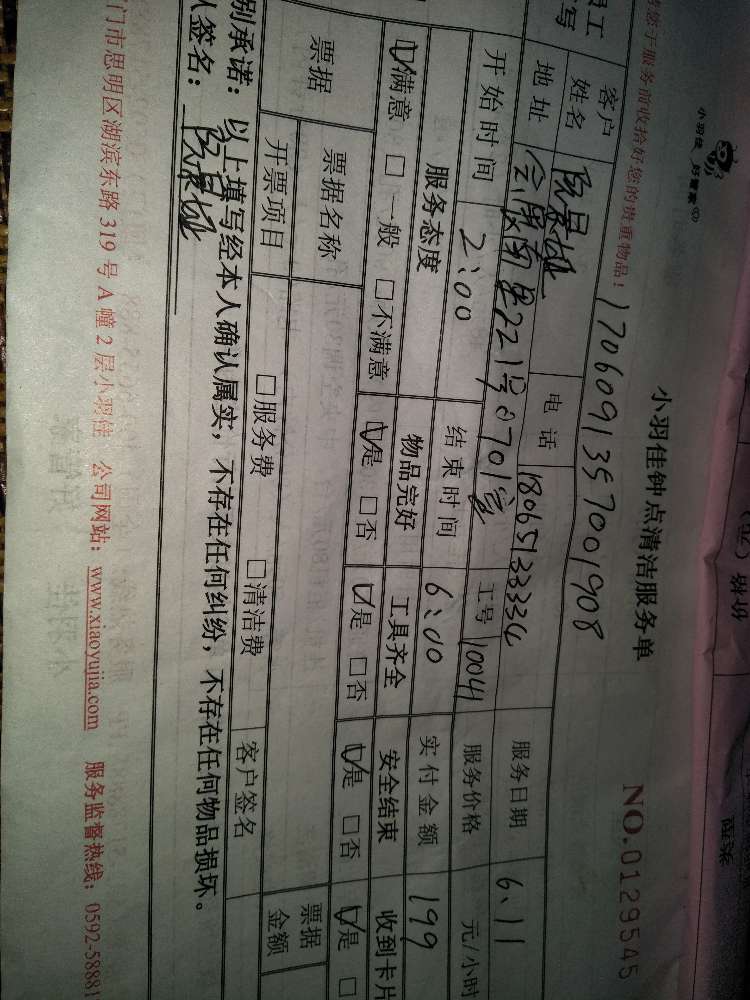 小羽佳 好管家
小羽佳钟点清洁服务单
NO.0129545
服务前收拾好您的贵重物品！1706091357001908
客户姓名 电话 18065133334 服务日期 6.11
地址 221号0701室 工号 10041 服务价格 元/小时
开始时间 2:00 结束时间 6:00 实付金额 199
服务态度 物品完好 工具齐全 安全结束 收到卡片
☑满意 □一般 □不满意 ☑是 □否 ☑是 □否 ☑是 □否 ☑是 □
票据 票据名称 票据金额
开票项目 □服务费 □清洁费 客户签名
别承诺：以上填写经本人确认属实，不存在任何纠纷，不存在任何物品损坏。
人签名：
门市思明区湖滨东路319号A幢2层小羽佳 公司网站：www.xiaoyujia.com 服务监督热线：0592-58881